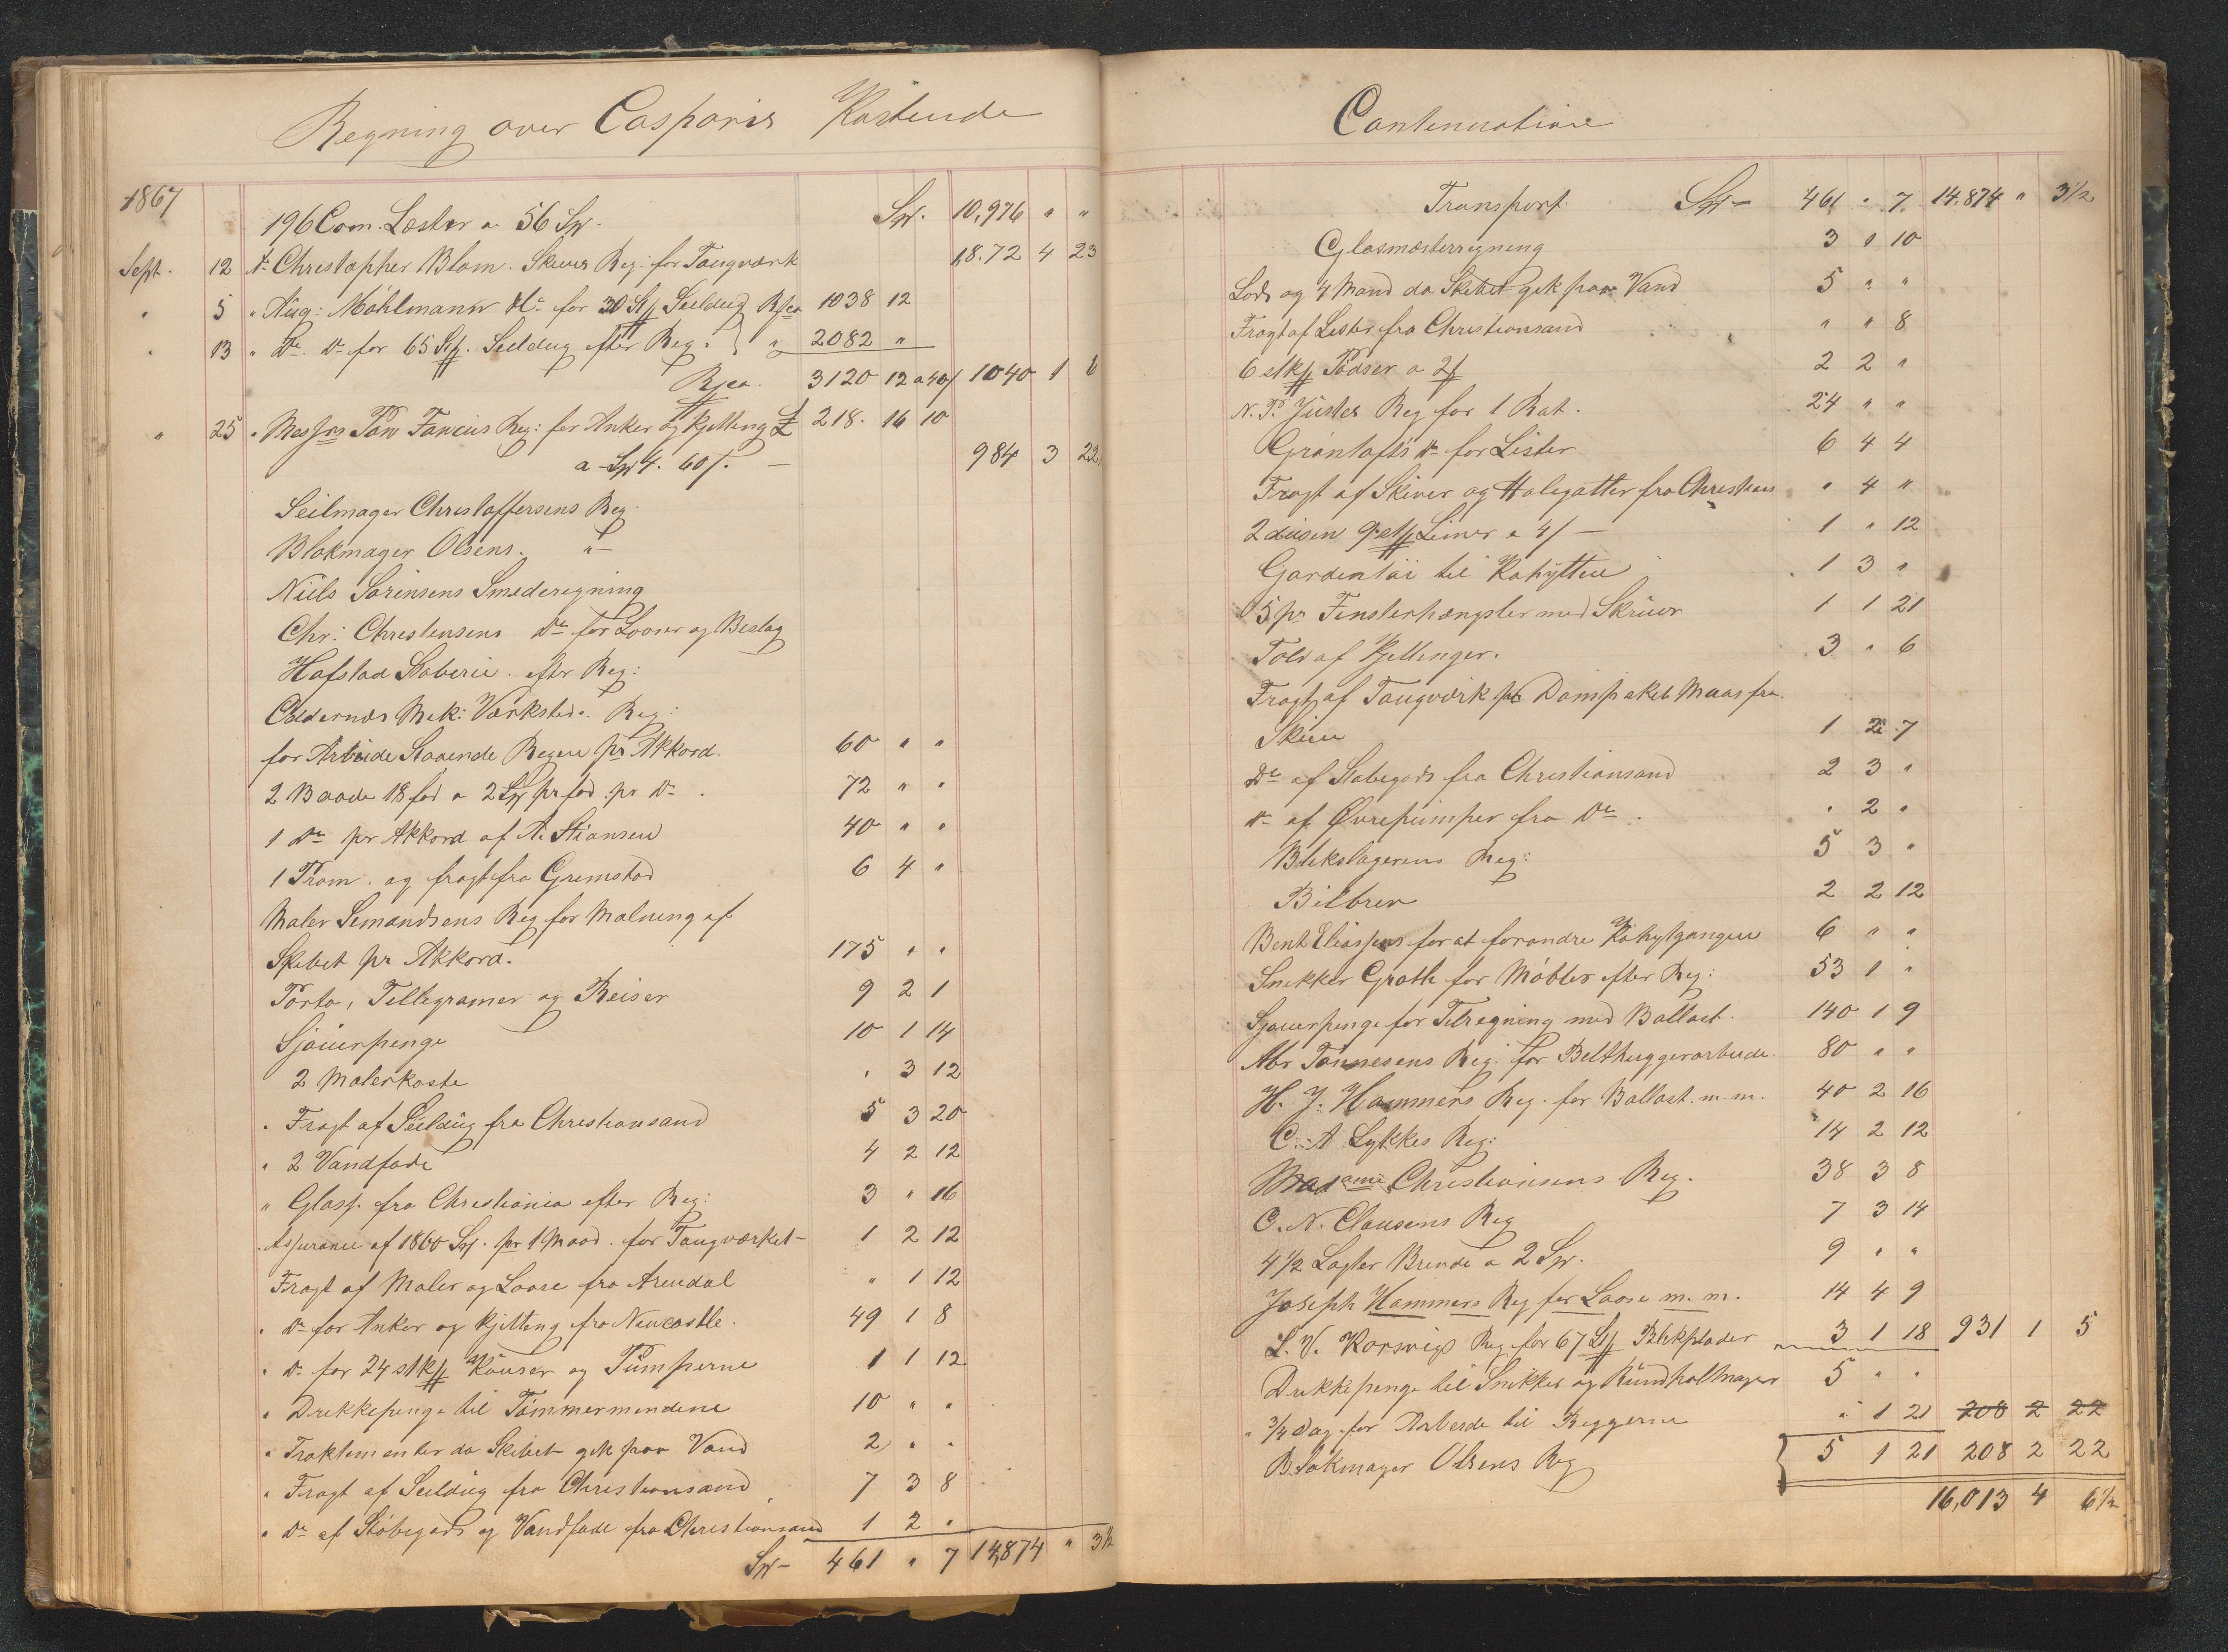 Regning over Casparis Kostende
1867
196 Com. Lester a 56 Sp. Sp. 10,976 " "
Sept. 12 Ar Christopher Blom. Skiens Reg: for Taugværk 18.72 4 23
" 5 " Aug: Möhlmann Do for 30 St Seildug Rm 1038 12
" 13 " Do. Do for 65 St. Seildug efter Reg. " 2082 "
3120 12 a 40/ 1040 1 6
" 25 " Messrs Reg: for Anker og Kjetting £ 218. 16 10
a Sp 4. 60/. — 984 3 22
Seilmager Christoffersens Reg.
Blokmager Olsens. " —
Niels Sörensens Smederegning
Chr: Christensens Do for Looser og Beslag
Hafstad Støberie. efter Reg:
Mek: Værksteds. Reg:
for Arbeide Staaende Regen pr Akkord. 60 " "
2 Baade 18 fod a 2 Sp pr fod pr Do. 72 " "
1 Do pr Akkord af A. Stiansen 40 " "
1 Pram. og fragt fra Grimstad 6 4 "
Maler Semandsens Reg for Malning af
Skibet pr Akkord. 175 " "
Porto, Tellegramer og Reiser 9 2 1
Sjouerpenge 10 1 14
2 Malerkoste " 3 12
" Fragt af Seildug fra Christiansand 5 3 20
" 2 Vandfade 4 2 12
" Glass. fra Christiania efter Reg: 3 " 16
Assurance af 1800 Sp. pr 1 Maad. for Taugværket — 1 2 12
Fragt af Maler og Loose fra Arendal " 1 12
" Do for Anker og Kjetting fra Newcastle. 49 1 8
" Do for 24 stk Kouser og Pumperne 1 1 12
" Drekkepenge til Tömmermendene 10 " "
" Traktementer da Skibet gik paa Vand 2 " "
" Fragt af Seildug fra Christiansand 7 3 8
" Do af Stöbegods og Vandfade fra Christiansand 1 2 "
Sp — 461 " 7 14,874 " 3½
Contenuatione
Transport Sp — 461 " 7. 14.874 " 3½
Glasmesterregning 3 " 10
Lods og 4 Mand da Skibet gik paa Vand 5 " "
Fragt af Lester fra Christiansand " " 8
6 stk Pödser a 2 2 2 "
N. P. Justes Reg for 1 Bat. 24 " "
Gröntofts Do for Lister 6 4 4
Fragt af Skiver og Halegatter fra Christians " 4 "
2 dusin Limer a 4/ — 1 " 12
Gardintöi til Kahytten 1 3 "
5 pr Fensterhængsler med Skruer 1 1 21
Told af Kjettinger. 3 " 6
Fragt af Taugværk pr Dampskib Maas fra
Skien 1 2 7
Do af Stobegods fra Christiansand 2 3 "
Do af Øvrepumper fra Do. " 2 "
Blekslagerens Reg: 5 3 "
Bilbrev 2 2 12
Bent Eliassens for at forandre Kahytgangen 6 " "
Snekker Groth for Möbler efter Reg: 53 1 "
Sjouerpenge for Tilregning med Ballast. 140 1 9
Abr Tönnesens Reg: for Belthuggerarbeide. 80 " "
H. J. Hammers Reg. for Ballast. m. m. 40 2 16
C. A Lykkes Reg: 14 2 12
Madame Christiansens Reg. 38 3 8
C. N. Clausens Reg 7 3 14
4½ Lagter Brende a 2 Sp. 9 " "
Joseph Hammers Reg for Loose m. m. 14 4 9
L. V. Korsvigs Reg for 67 St Blekplader 3 1 18 931 1 5
Drekkepenge til Snikker og Rundholtmager 5 " "
" ¾ Dag for Arbeide til Reggerne " 1 21 208 2 22
Blokmager Olsens Reg 5 1 21 208 2 22
16,013 4 6½